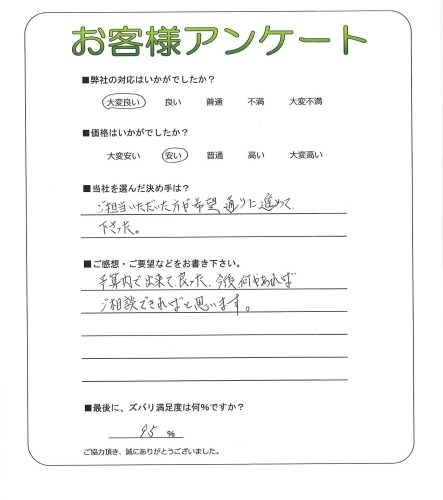 お客様アンケート
■弊社の対応はいかがでしたか？
大変良い 良い 普通 不満 大変不満
■価格はいかがでしたか？
大変安い 安い 普通 高い 大変高い
■当社を選んだ決め手は？
ご担当いただいた方が希望通りに進めて
下さった。
■ご感想・ご要望などをお書き下さい。
予算内で出来て良った、今後何かあれば
ご相談できればと思います。
■最後に、ズバリ満足度は何％ですか？
95 %
ご協力頂き、誠にありがとうございました。